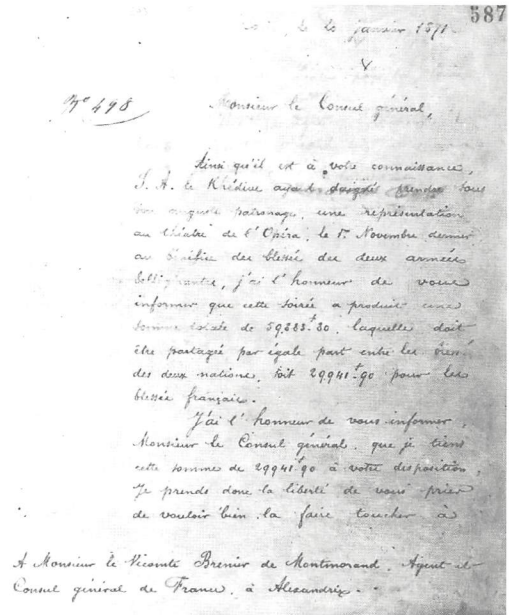 587
janvier 1871.
N° 498
Monsieur le Consul général,
Ainsi qu'il est à votre connaissance,
S. A. le Krédive ayant daigné prendre sous
son auguste patronage, une représentation
au théâtre de l'Opéra, le 1er Novembre dernier
au bénéfice des blessés des deux armées
belligérantes, j'ai l'honneur de vous
informer que cette soirée a produit une
somme totale de 59,883f.80, laquelle doit
être partagée par égale part entre les blessés
des deux nations, soit 29941f.90 pour les
blessés français.
J'ai l'honneur de vous informer,
Monsieur le Consul général, que je tiens
cette somme de 29941f.90 à votre disposition,
Je prends donc la liberté de vous prier
de vouloir bien la faire toucher à
A Monsieur le Vicomte Brenier de Montmorand, Agent et
Consul général de France, à Alexandrie.